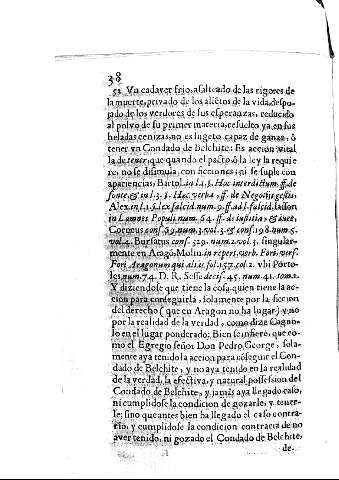 38
52 Vn cadaver frio, asalteado de las rigores de
la muerte, privado de los alietos de la vida, despo-
jado de los verdores de sus esperanzas, reducido
al polvo de su primer materia, resuelto ya en sus
heladas cenizas, no es sugeto capaz de ganar, ò
tener vn Condado de Belchite: Es accion vital
la de tener, que quando el pacto, ò la ley la requie
re, no se disimula, con ficciones, ni se suple con
apariencias, Bartol. in l. 3. Hoc interdictum, ff. de
fonte, & in l. 3. §. Hæc verba, ff. de Negotijs gestis,
Alex. in l. 1. §. lex falcid. num. 9. ff. ad l. falcid. Iasson
in l. omnes Populi num. 54. ff. de iustitia, & iure,
Corneus conf. 39. num. 3. vol. 3. & conf. 198. num. 5.
vol. 4. Bursatus conf. 329. num. 2. vol. 3. singular-
mente en Aragõ, Molin. in repert. verb. Fori, vers.
Fori Aragonum qui alijs, fol. 157. col. 2. vbi Porto-
les, num. 74. D. R. Sesse decis. 45. num. 41. tom. 1.
Y diziendose que tiene la cosa, quien tiene la ac-
cion para conseguirla, solamente por la ficcion
del derecho ( que en Aragon no ha lugar ) y no
por la realidad de la verdad, como dize Cagno-
lo en el lugar ponderado; Bien se infiere, que co-
mo el Egregio señor Don Pedro, George, sola-
mente aya tenido la accion para conseguir el Con-
dado de Belchite, y no aya tenido en la realidad
de la verdad, la efectiva, y natural possession del
Condado de Belchite, y jamàs aya llegado caso,
ni cumplidose la condicion de gozarle, y tener-
le; sino que antes bien ha llegado el caso contra-
rio, y cumplidose la condicion contraria de no
aver tenido, ni gozado el Condado de Belchite,
de-